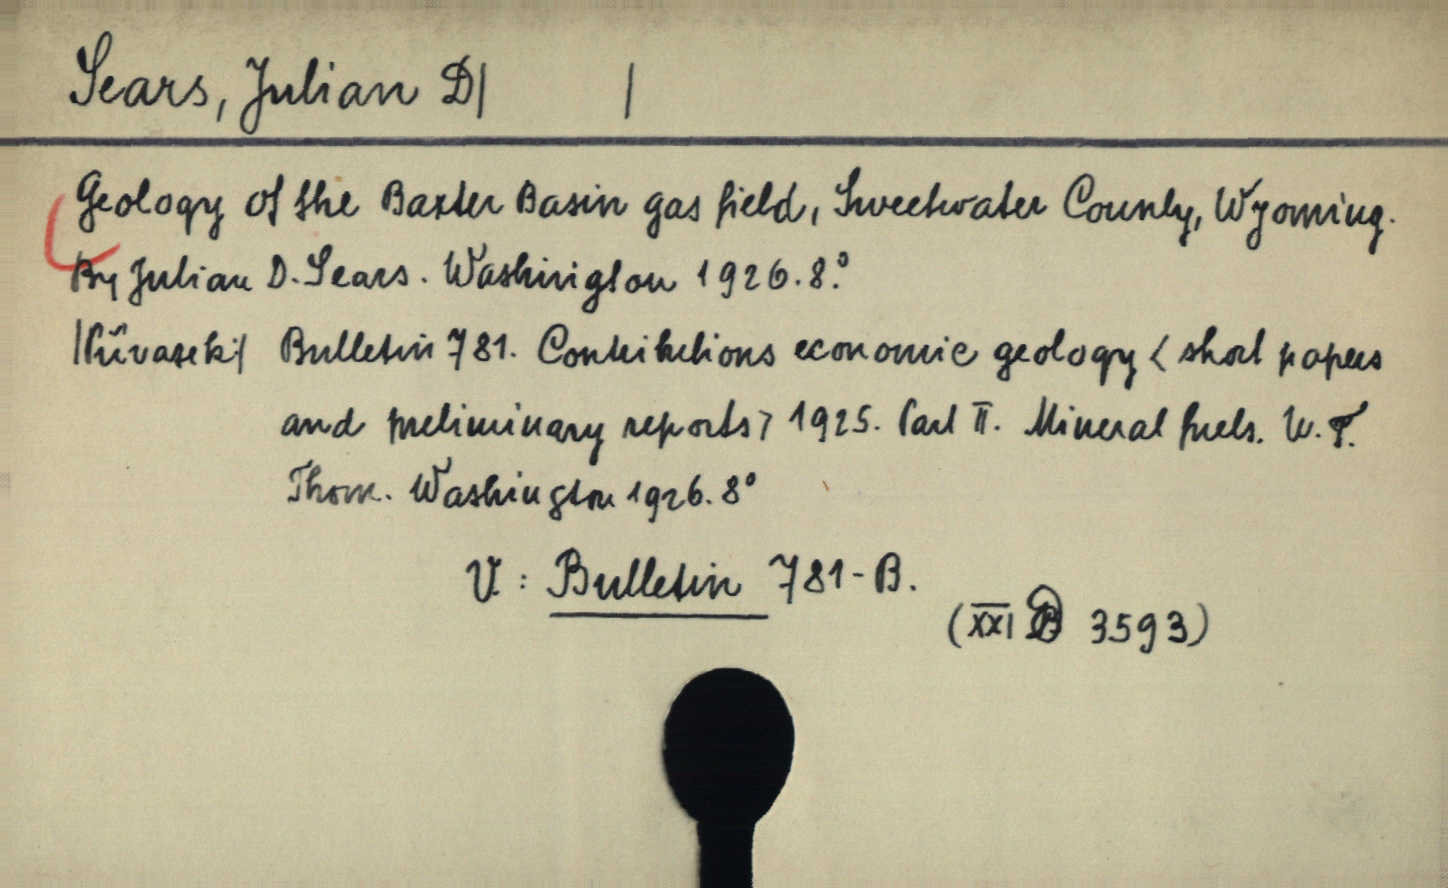 Sears, Julian D| |
Geology of the Baxter Basin gas field, Sweetwater County, Wyoming.
By Julian D. Sears. Washington 1926. 8.°
Bulletin 781. Contributions economic geology < short papers
and preliminary reports > 1925. Part II. Mineral fuels. W. T.
Thom. Washington 1926. 8°
V. : Bulletin 781-B.
(XXI B 3593)